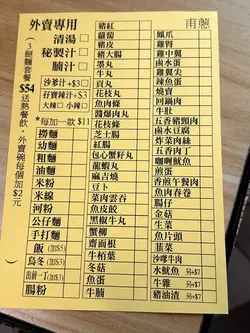 外賣專用
甫蔥
(3餸麵套餐$54送熱餐飲,外賣碗每個加$2元)
清湯
秘製汁
腩汁
沙爹汁+$3
孖汁+$3
大辣 小辣
*每加一款$11
撈麵
幼麵
粗麵
油麵
米粉
米線
河粉
公仔麵
手打麵
飯(加$3)
烏冬(加$3)
出前一丁(加$3)
腸粉
豬紅
蘿蔔
豬皮
豬大腸
墨丸
牛丸
貢丸
花枝丸
魚肉條
醬爆肉丸
花枝餅
芝士腸
紅腸
包心蟹籽丸
龍蝦丸
麻吉燒
豆卜
菜肉雲吞
魚皮餃
腐皮卷
蟹柳
齋面根
牛柏葉
冬菇
魚蛋
牛腩
鳳爪
雞腎
雞中翼
鹵水蛋
雞翼尖
辣魚蛋
燒賣
回鍋肉
牛肚
五香豬頸肉
鹵水豆腐
炸菜肉絲
五香肉丁
咖喱魷魚
煎蛋
香煎午餐肉
魚肉春卷
腸仔
金菇
生菜
魚片頭
菇菜
沙嗲牛肉
水魷魚 另+$7
牛雜 另+$7
豬油渣 另+$7